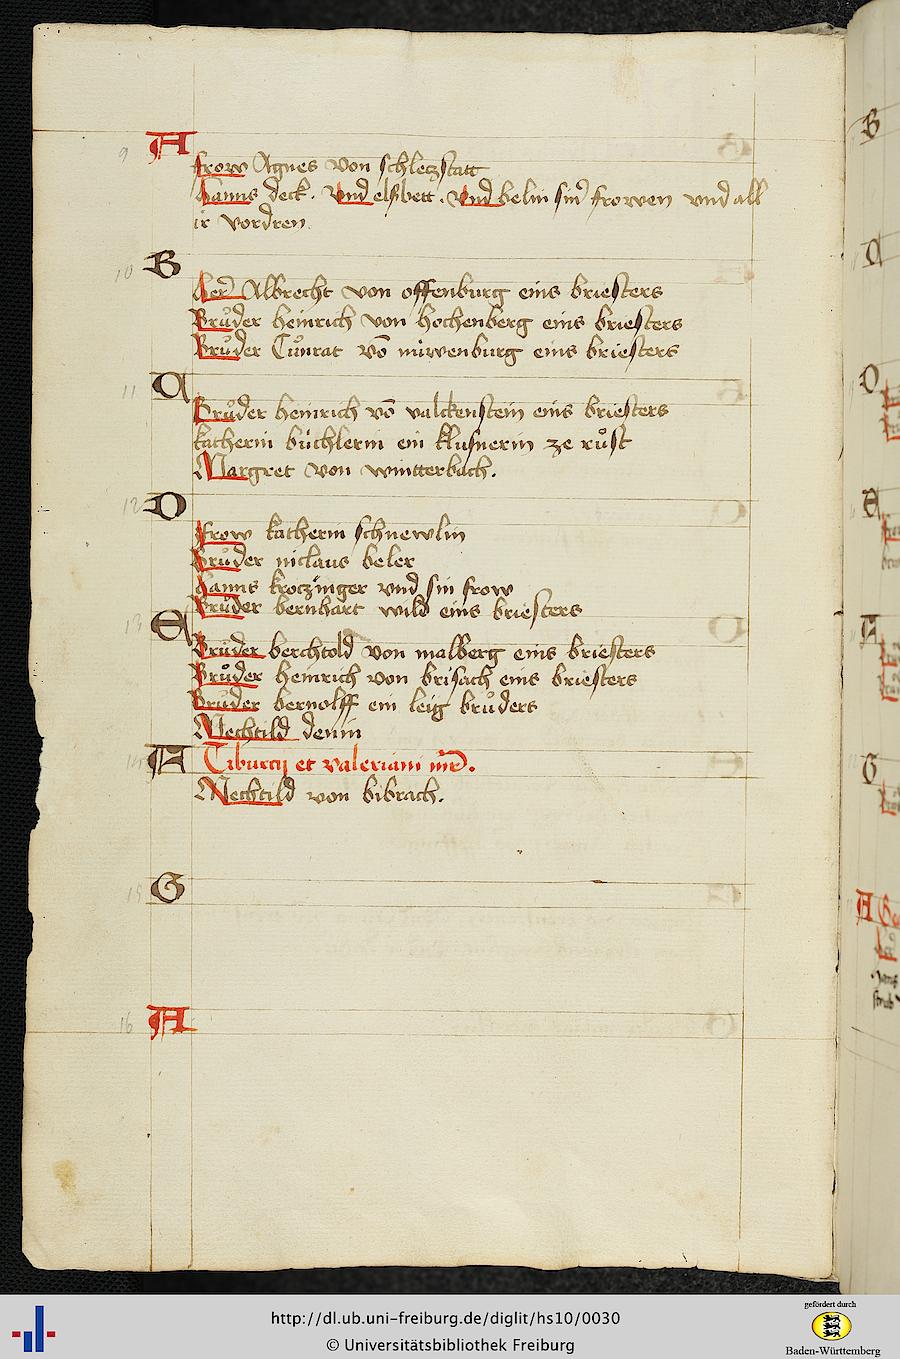 9 A
frow Agnes von schletzstatt
Hanns deck. vnd elsbett. vnd belin sin frowen vnd all
ir vordren.
10 B
Her Albrecht von offenburg eins briesters
Brůder heinrich von hochenberg eins briesters
Brůder Cůnrat vō nüwenburg eins briesters
11 C
Brůder heinrich vō valckenstein eins briesters
katherin büchlerin ein klusnerin ze růst
Margret von wintterbach.
12 D
frow katherin schnewlin
Brůder niclaus beler
Hanns krotzinger vnd sin frow
Brůder bernhart wild eins briesters
13 E
Brůder berchtold von malberg eins briesters
Brůder heinrich von brisach eins briesters
Brůder bernolff ein leig brůders
Mechtild denin
14 F Tiburcij et valeriani mr̄.
Mechtild von bibrach.
15 G
16 A
http://dl.ub.uni-freiburg.de/diglit/hs10/0030
© Universitätsbibliothek Freiburg
gefördert durch
Baden-Württemberg